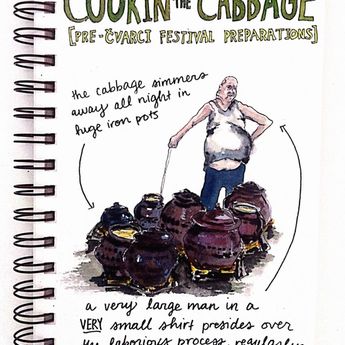 COOKIN THE CABBAGE
[PRE-ČVARCI FESTIVAL PREPARATIONS]
the cabbage simmers
away all night in
huge iron pots
a very large man in a
VERY small shirt presides over
the laborious process, regularly